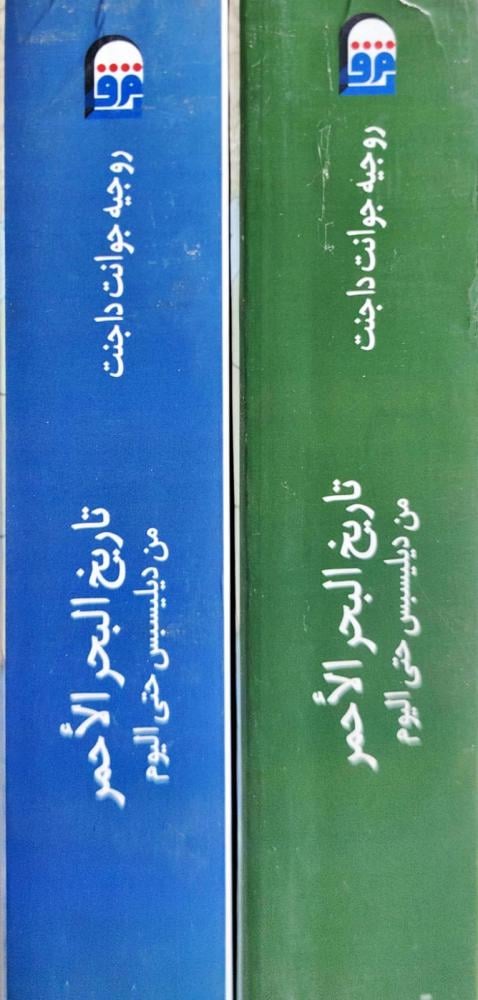 روجيه جوانت داجنت
تاريخ البحر الأحمر
من ديليسبس حتى اليوم
روجيه جوانت داجنت
تاريخ البحر الأحمر
من ديليسبس حتى اليوم